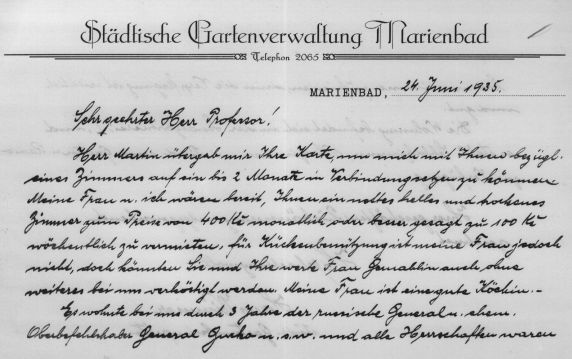 Städtische Gartenverwaltung Marienbad
Telephon 2065
MARIENBAD, 24. Juni 1935.
Sehr geehrter Herr Professor!
Herr Martin übergab mir Ihre Karte, um mich mit Ihnen bezügl.
eines Zimmers auf ein bis 2 Monate in Verbindung setzen zu können
Meine Frau u. ich wären bereit, Ihnen ein nettes helles und trockenes
Zimmer zum Preise von 400 Kč monatlich oder besser gesagt zu 100 Kč
wöchentlich zu vermieten, für Küchenbenützung ist meine Frau jedoch
nicht, doch könnten Sie und Ihre werte Frau Gemahlin auch ohne
weiteres bei uns verköstigt werden. Meine Frau ist eine gute Köchin.-
Es wohnte bei uns durch 3 Jahre der russische General u. ehem.
Oberbefehlshaber General Gurko u. s. w. und alle Herrschaften waren